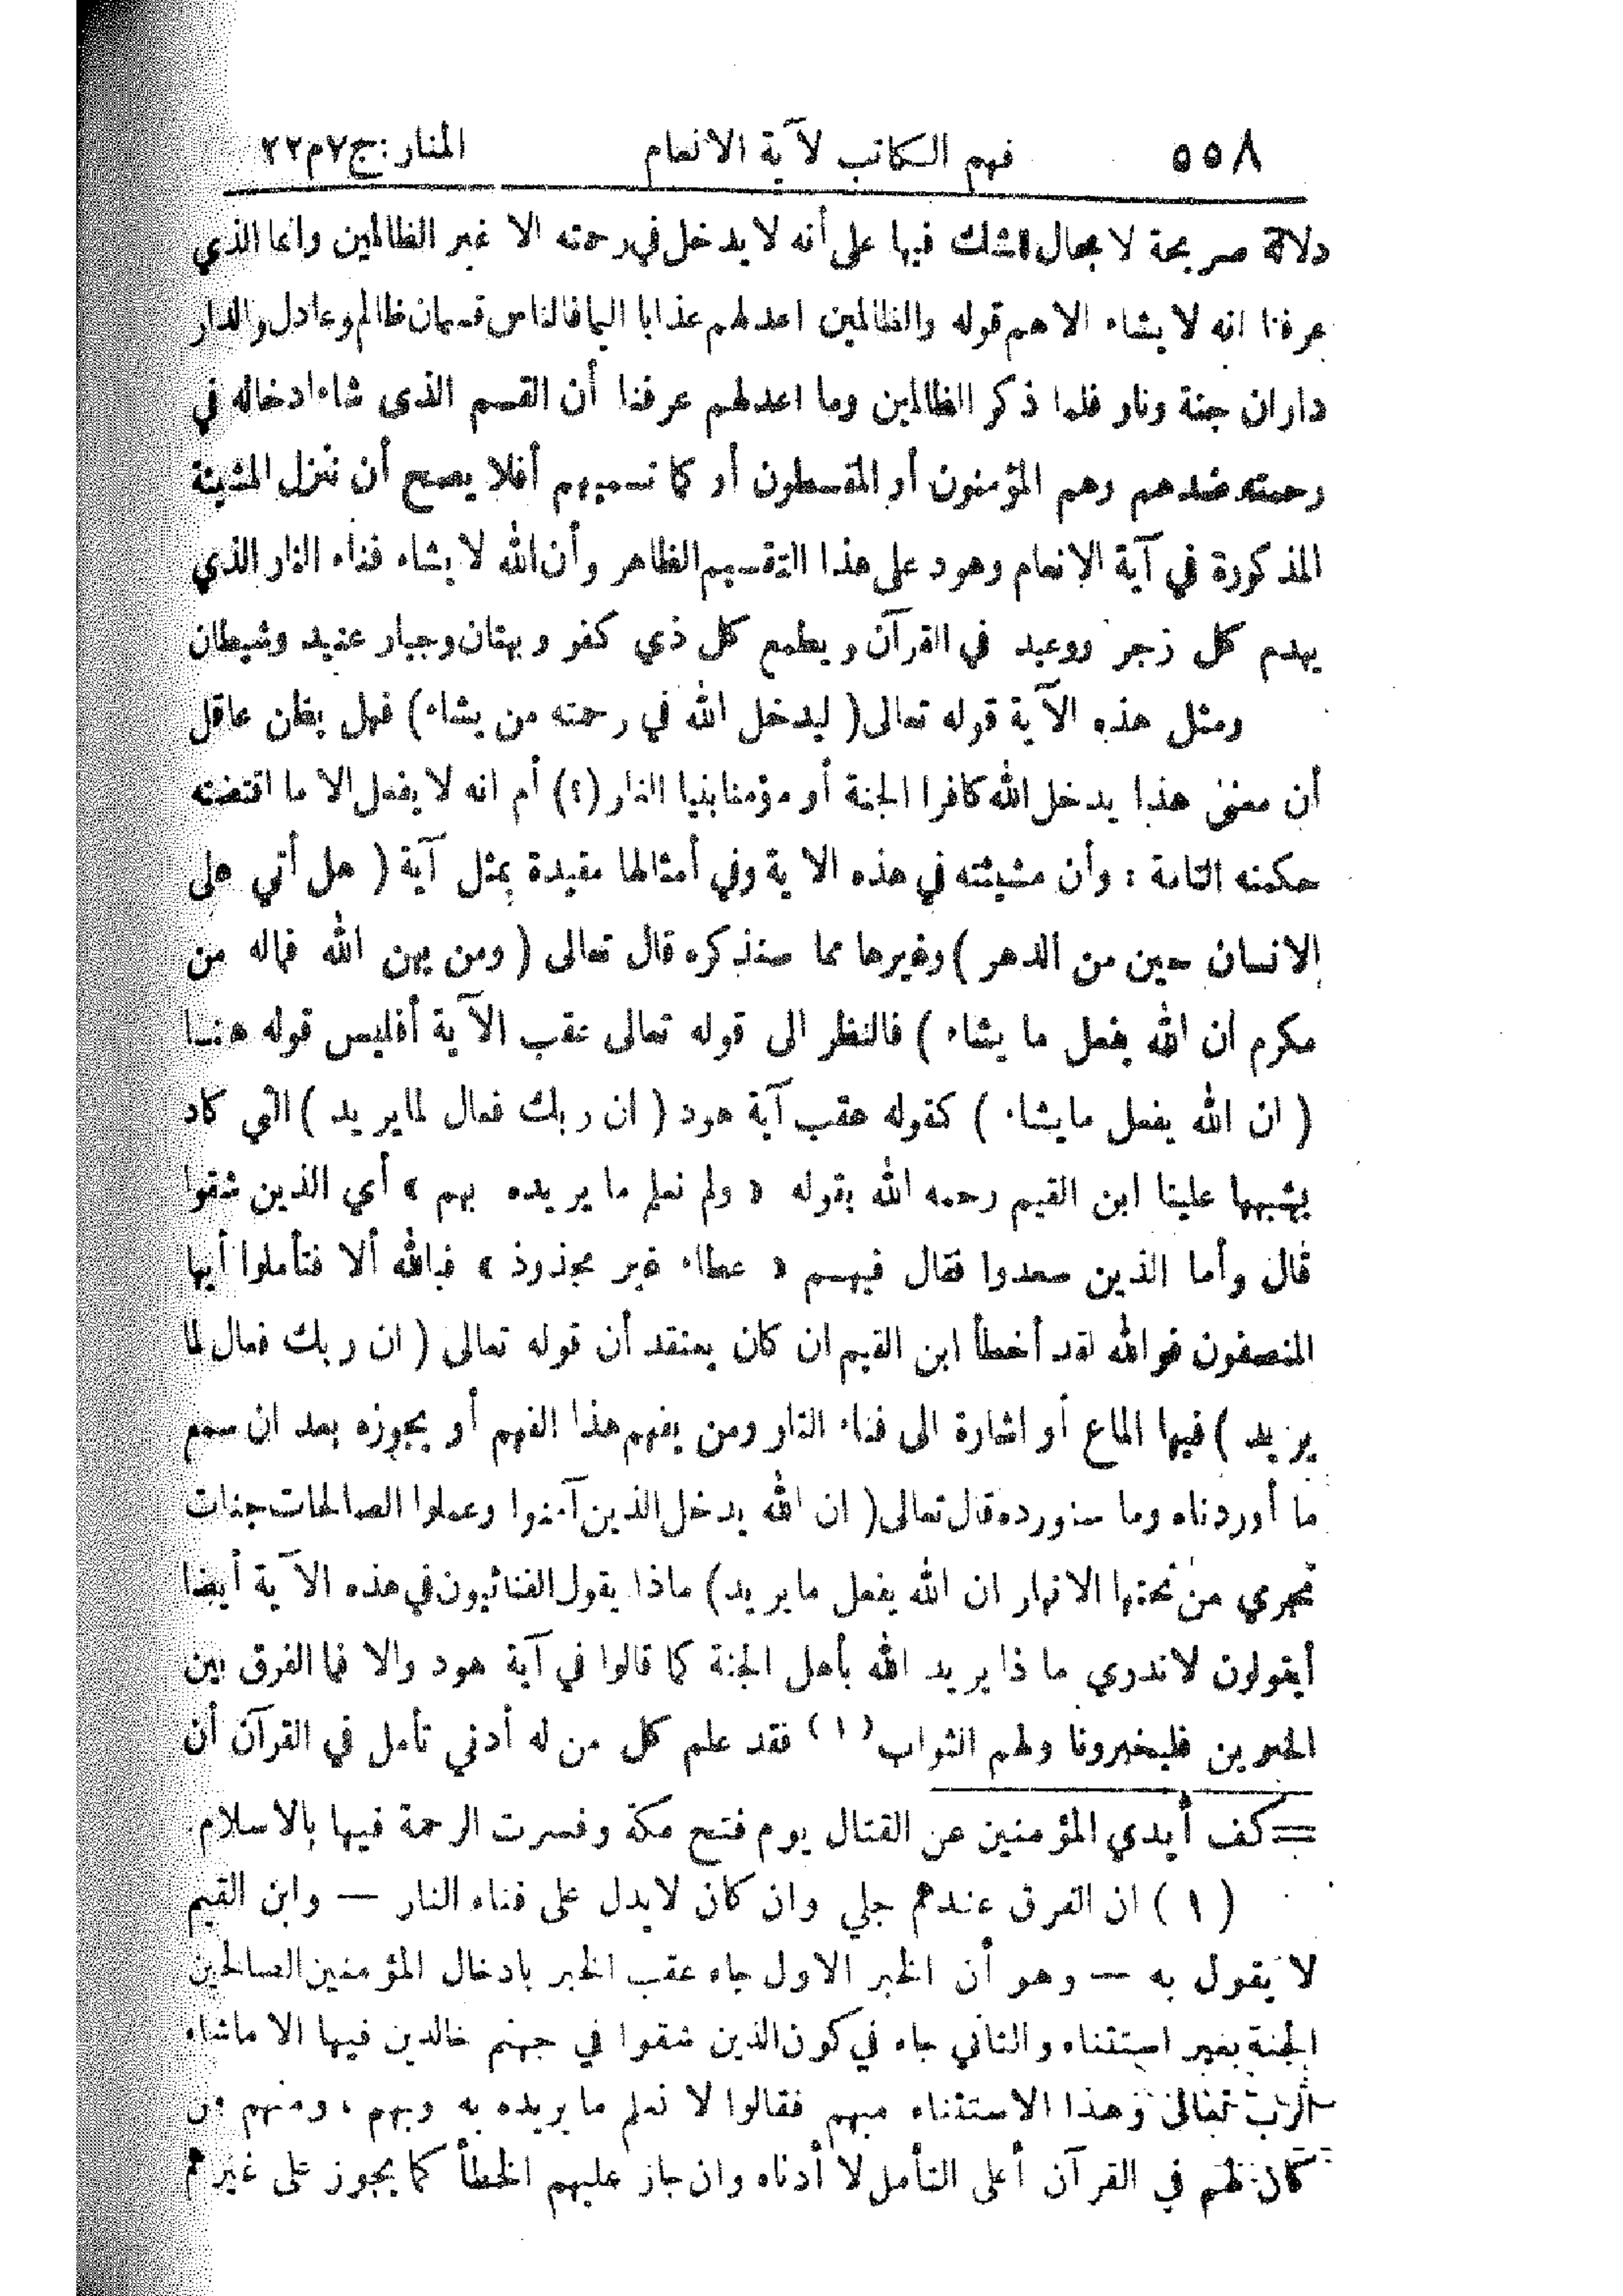 ٥٥٨ فهم الكاتب لآية الانعام المنار:ج٧م٢٢
دلالة صريحة لا مجال للشك فيها على أنه لا يدخل في رحمته الا غير الظالمين وانما الذي
عرفنا انه لا يشاء الا هم قوله والظالمين اعد لهم عذابا اليما فالناس قسمان ظالم وعادل والدار
داران جنة ونار فلما ذكر الظالمين وما اعد لهم عرفنا أن القسم الذى شاء ادخاله في
رحمته ضدهم وهم المؤمنون أو المقسطون أو كما تسميهم أفلا يصح أن ننزل المشيئة
المذكورة في آية الانعام وهود على هذا التقسيم الظاهر وأن الله لا يشاء فناء النار الذي
يهدم كل زجر ووعيد في القرآن ويطمع كل ذي كفر وبهتان وجبار عنيد وشيطان
ومثل هذه الآية قوله تعالى ( ليدخل الله في رحمته من يشاء ) فهل يظن عاقل
أن معنى هذا يدخل الله كافرا الجنة أو مؤمنا بنيا النار (؟) أم انه لا يفعل الا ما اقتضته
حكمته التامة : وأن مشيئته في هذه الاية وفي أمثالها مقيدة بمثل آية ( هل أتي على
الانسان حين من الدهر ) وغيرها مما سنذكره قال تعالى ( ومن يهن الله فماله من
مكرم ان الله يفعل ما يشاء ) فالنظر الى قوله تعالى عقب الآية أفليس قوله هنا
( ان الله يفعل مايشاء ) كقوله عقب آية هود ( ان ربك فعال لما يريد ) التي كاد
يشبهها علينا ابن القيم رحمه الله بقوله « ولم نعلم ما يريده بهم » أي الذين شقوا
قال وأما الذين سعدوا فقال فيهم « عطاء غير مجذوذ » فبالله ألا فتأملوا أيها
المنصفون فوالله لقد أخطأ ابن القيم ان كان يعتقد أن قوله تعالى ( ان ربك فعال لما
يريد ) فيها الماع أو اشارة الى فناء النار ومن يفهم هذا الفهم أو يجوزه بعد ان سمع
ما أوردناه وما سنورده قال تعالى ( ان الله يدخل الذين آمنوا وعملوا الصالحات جنات
تجري من تحتها الانهار ان الله يفعل مايريد ) ماذا يقول الفنائيون في هذه الآية أيضا
أيقولون لاندري ما ذا يريد الله بأهل الجنة كما قالوا في آية هود والا فما الفرق بين
الخبرين فليخبرونا ولهم الثواب (١) فقد علم كل من له أدني تأمل في القرآن أن
= كف أيدي المؤمنين عن القتال يوم فتح مكة وفسرت الرحمة فيها بالاسلام
(١) ان الفرق عندهم جلي وان كان لايدل على فناء النار — وابن القيم
لا يقول به — وهو أن الخبر الاول جاء عقب الخبر بادخال المؤمنين الصالحين
الجنة بغير استثناء والثاني جاء في كون الذين شقوا في جهنم خالدين فيها الا ماشاء
الرب تعالى وهذا الاستثناء مبهم فقالوا لا نعلم ما يريده به وبهم ، ومنهم من
كان لهم في القرآن أعلى التأمل لا أدناه وان جاز عليهم الخطأ كما يجوز على غيرهم